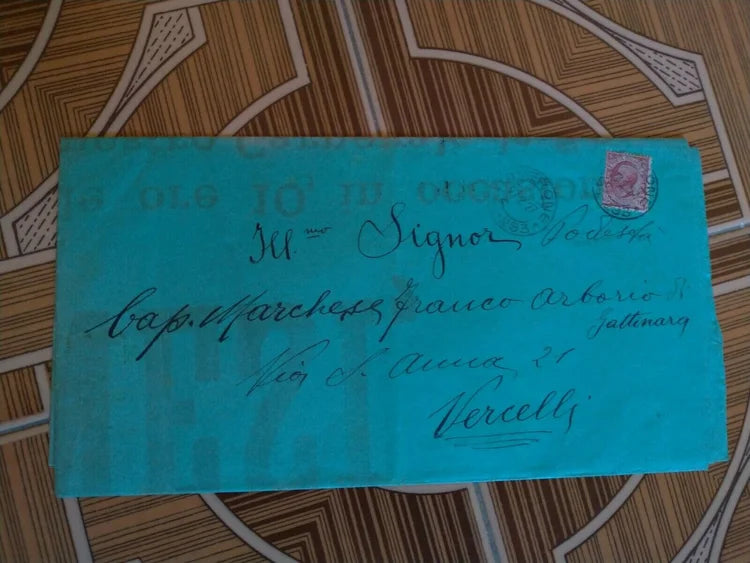 ore 10, in occasion
Ill.mo Signor Podestà
Cap. Marchese Franco Arborio di
Gattinara
Via S. Anna 21
Vercelli